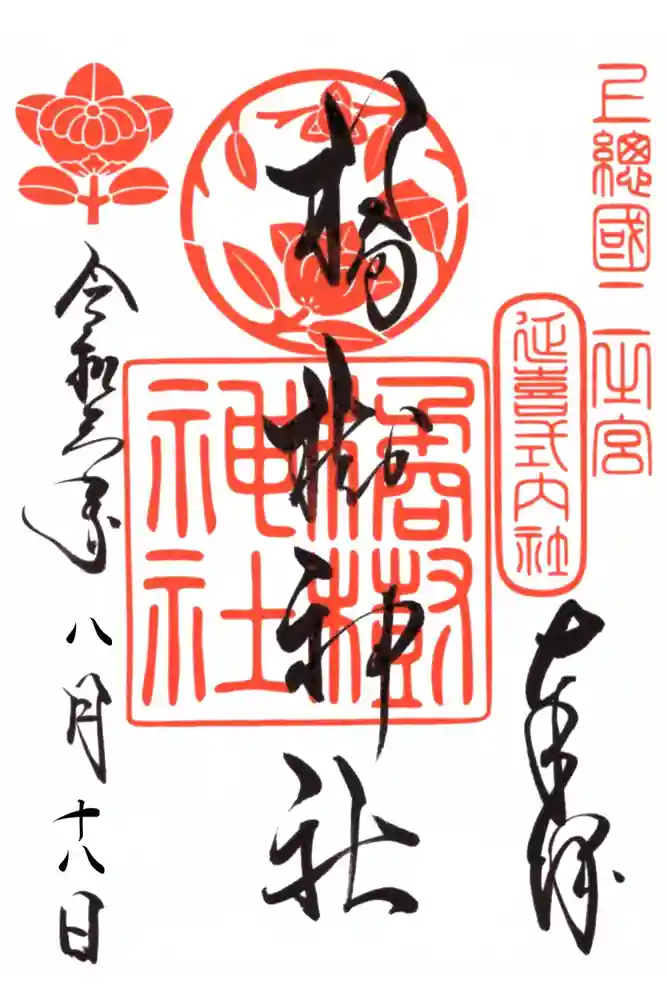 上總國二之宮
延喜式内社
奉拝
橘樹神社
橘樹
神社
令和三年八月十八日